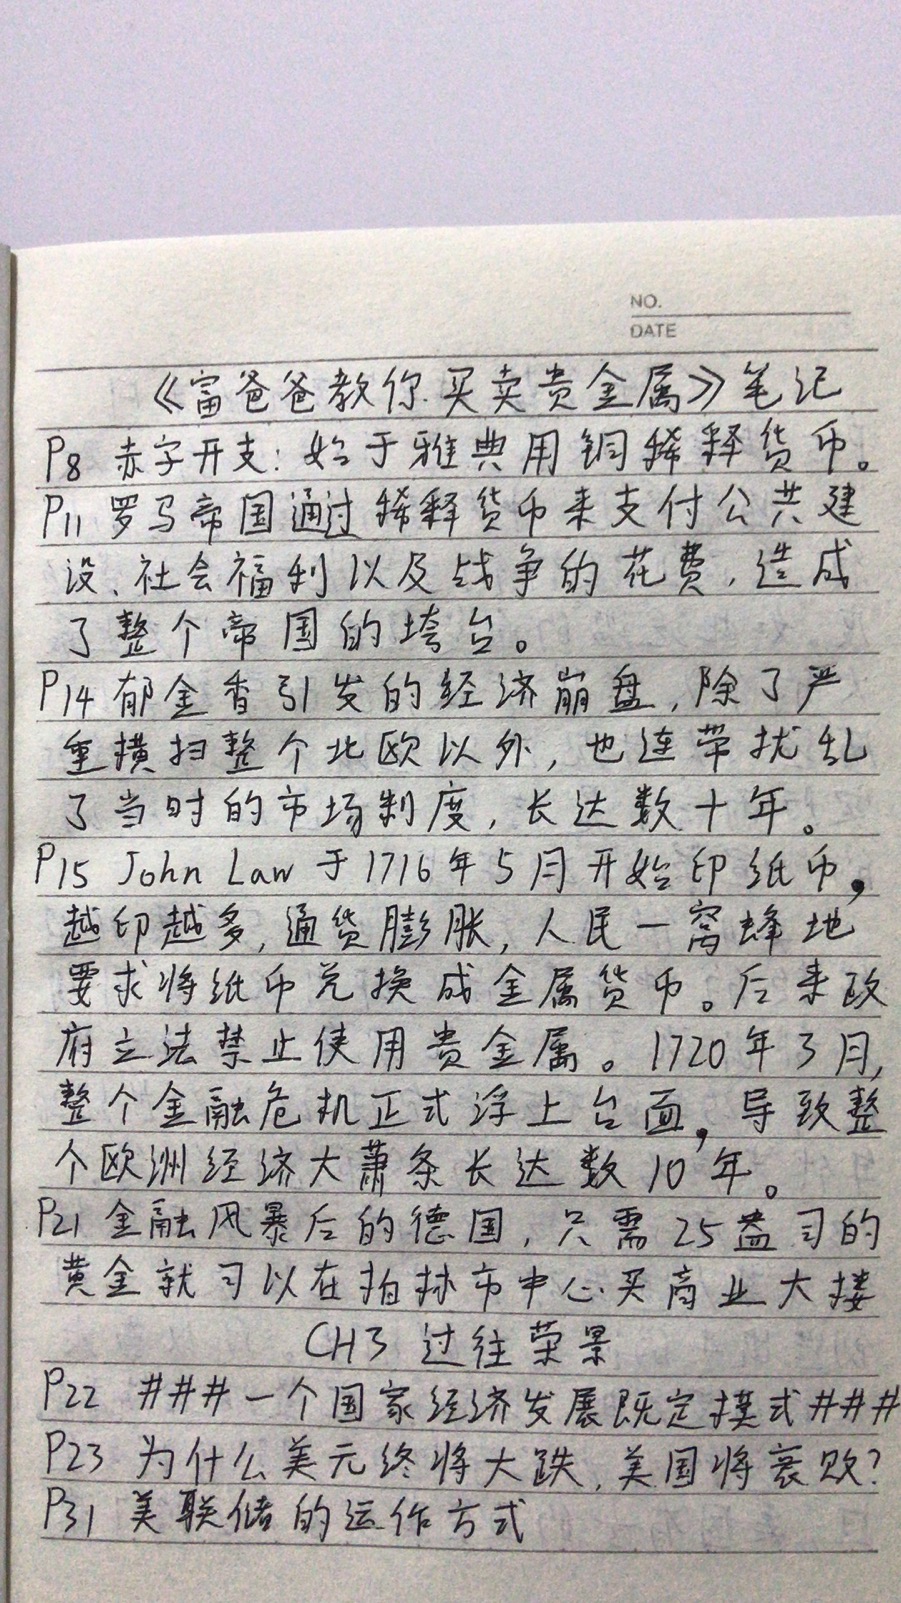 NO.
DATE
《富爸爸教你买卖贵金属》笔记
P8 赤字开支:始于雅典用铜稀释货币。
P11 罗马帝国通过稀释货币来支付公共建
设、社会福利以及战争的花费,造成
了整个帝国的垮台。
P14 郁金香引发的经济崩盘,除了严
重横扫整个北欧以外,也连带扰乱
了当时的市场制度,长达数十年。
P15 John Law 于1716年5月开始印纸币,
越印越多,通货膨胀,人民一窝蜂地
要求将纸币兑换成金属货币。后来政
府立法禁止使用贵金属。1720年3月,
整个金融危机正式浮上台面,导致整
个欧洲经济大萧条长达数10年。
P21 金融风暴后的德国,只需25盎司的
黄金就可以在柏林市中心买商业大楼
CH3 过往荣景
P22 ###一个国家经济发展既定模式###
P23 为什么美元终将大跌,美国将衰败?
P31 美联储的运作方式